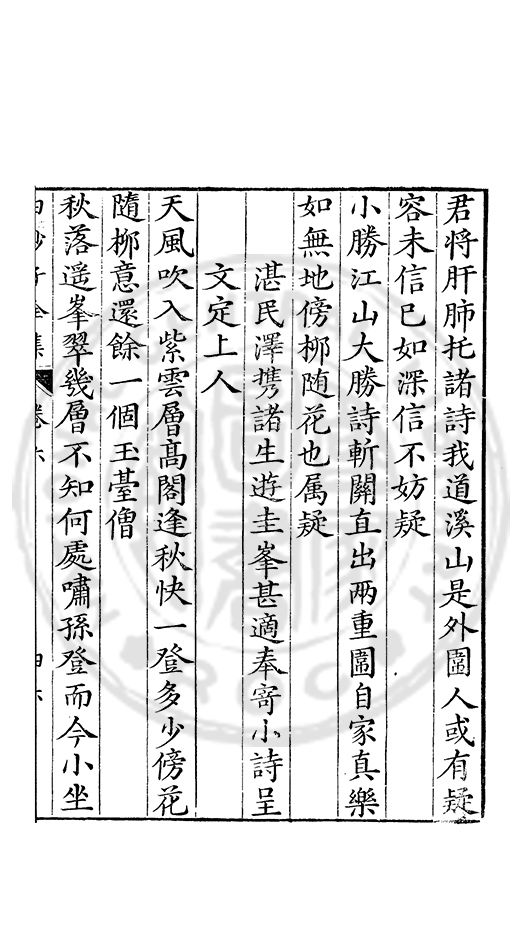 君将肝肺托諸詩我道溪山是外圖人或有疑
容未信已如深信不妨疑
小勝江山大勝詩斬關直出兩重圖自家真樂
如無地傍栁随花也属疑
湛民澤携諸生遊圭峯甚適奉寄小詩呈
文定上人
天風吹入紫雲層髙閣逢秋快一登多少傍花
隨栁意還餘一個玉臺僧
秋落遥峯翠幾層不知何處嘯孫登而今小坐
白沙子全集 卷六